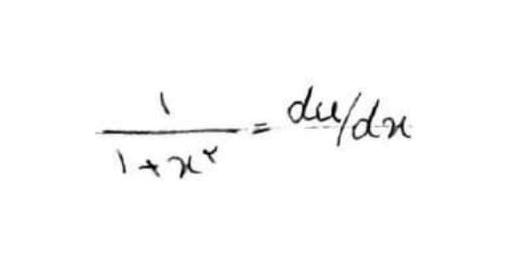 1/(1+x²) = du/dx